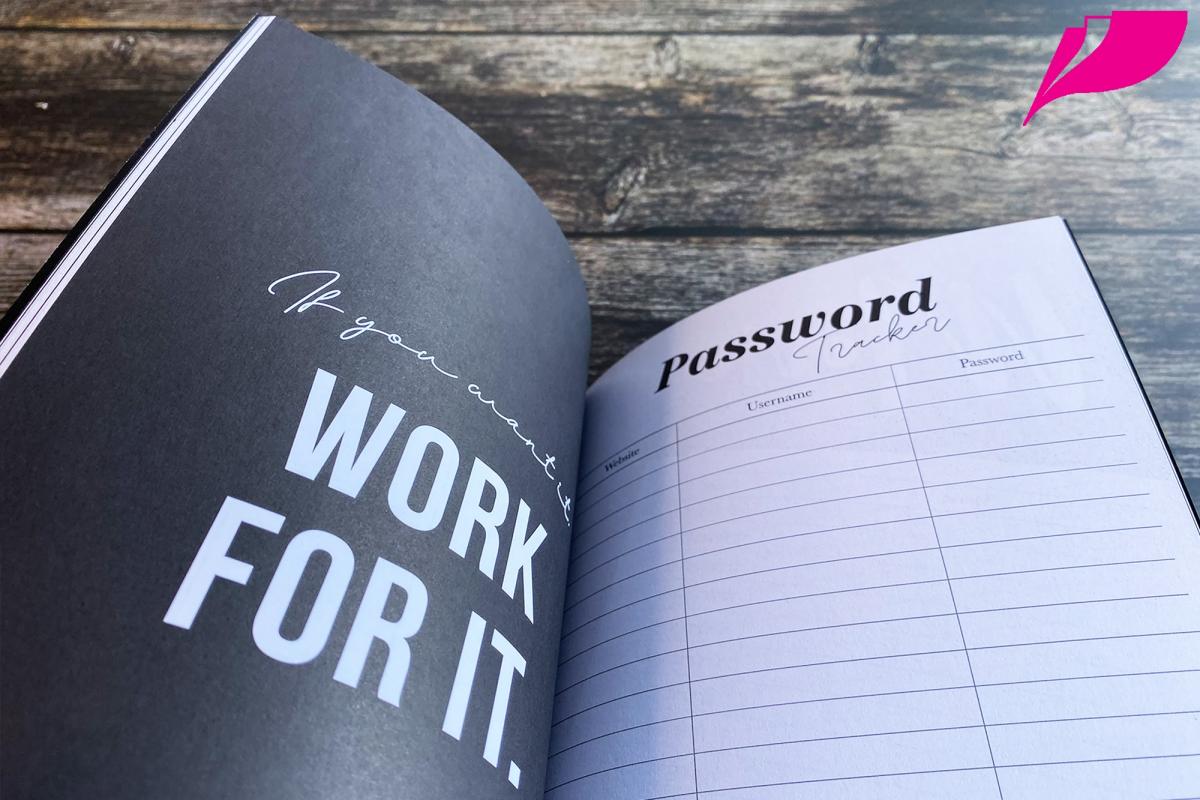 If you want it.
WORK
FOR IT.
Password
Tracker
Website Username Password